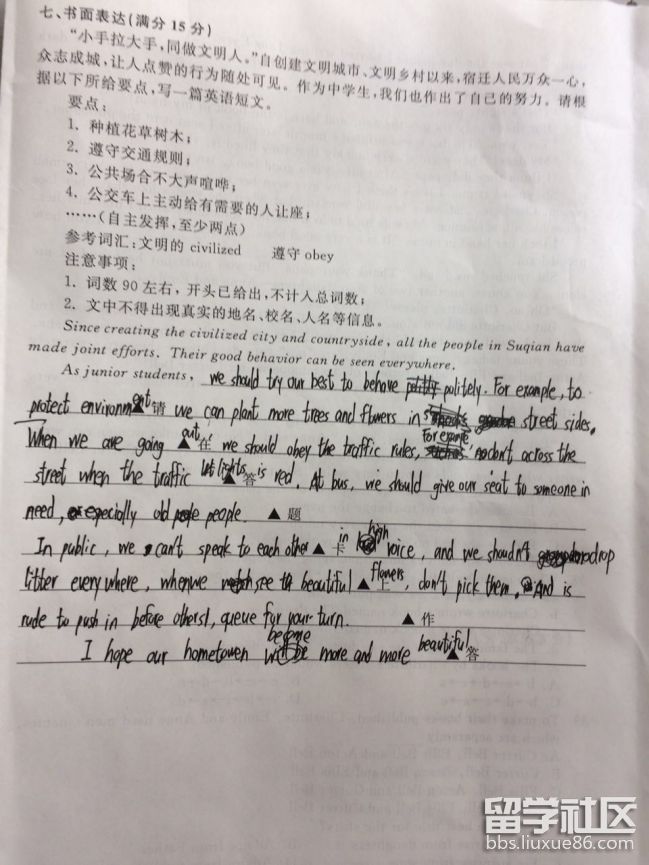 七、书面表达(满分 15 分)
“小手拉大手,同做文明人。”自创建文明城市、文明乡村以来,宿迁人民万众一心,
众志成城,让人点赞的行为随处可见。作为中学生,我们也作出了自己的努力。请根
据以下所给要点,写一篇英语短文。
要点:
1. 种植花草树木;
2. 遵守交通规则;
3. 公共场合不大声喧哗;
4. 公交车上主动给有需要的人让座;
……(自主发挥,至少两点)
参考词汇:文明的 civilized 遵守 obey
注意事项:
1. 词数 90 左右,开头已给出,不计入总词数;
2. 文中不得出现真实的地名、校名、人名等信息。
Since creating the civilized city and countryside, all the people in Suqian have
made joint efforts. Their good behavior can be seen everywhere.
As junior students, we should try our best to behave politely. For example, to
protect environment ▲请 we can plant more trees and flowers in street sides.
When we are going out ▲在 we should obey the traffic rules, for example don't across the
street when the traffic lights ▲答 is red. At bus, we should give our seat to someone in
need, especially old people. ▲ 题
In public, we can't speak to each other ▲ 卡 in high voice, and we shoudn't drop
litter everywhere, when we see beautiful ▲ 上 flowers, don't pick them, And is
rude to push in before others, queue for your turn. ▲ 作
I hope our hometown become more and more beautiful ▲答
留学社区
bbs.liuxue86.com